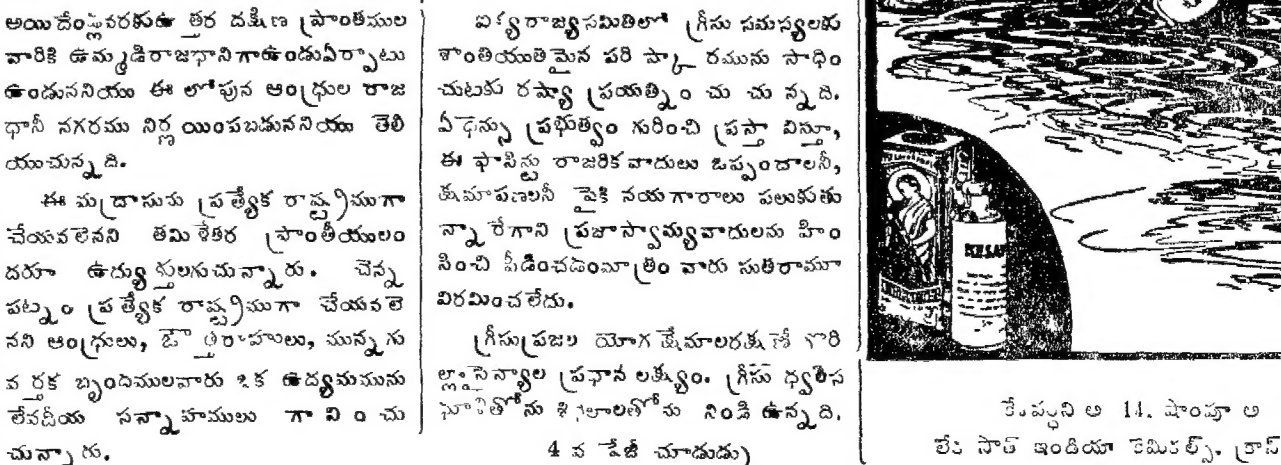 అయిదేండ్లవరకుఉత్తర దక్షిణ ప్రాంతముల
వారికి ఉమ్మడిరాజధానిగాఉండుఏర్పాటు
ఉండుననియు ఈ లోపున ఆంధ్రుల రాజ
ధానీ నగరము నిర్ణయింపబడుననియు తెలి
యుచున్నది.
ఈ మద్రాసును ప్రత్యేక రాష్ట్రముగా
చేయవలెనని తమిళేతర ప్రాంతీయులం
దరూ ఉద్యుక్తులగుచున్నారు. చెన్న
పట్నం ప్రత్యేక రాష్ట్రముగా చేయవలె
నని ఆంధ్రులు, ఔత్తరాహులు, మున్నగు
వర్తక బృందములవారు ఒక ఉద్యమమును
లేవదీయ సన్నాహములు గావించు
చున్నారు.
ఐక్యరాజ్యసమితిలో గ్రీసు సమస్యలకు
శాంతియుతమైన పరిష్కారమును సాధిం
చుటకు రష్యా ప్రయత్నించుచున్నది.
ఏథెన్సు ప్రభుత్వం గురించి ప్రస్తావిస్తూ,
ఈ ఫాసిస్టు రాజరికవాదులు ఒప్పందాలనీ,
క్షమాపణలనీ పైకి నయగారాలు పలుకుతు
న్నారేగాని ప్రజాస్వామ్యవాదులను హిం
సించి పీడించడంమాత్రం వారు సుతరామూ
విరమించలేదు.
గ్రీసుప్రజల యోగక్షేమాలరక్షణే వారి
సైన్యాల ప్రధాన లక్ష్యం. గ్రీసు ధ్వళిస
ధూళితోను శిథిలాలతోను నిండి ఉన్నది.
4 వ పేజీ చూడుడు)
KESAV
అ 14. షాంపూ అ
లేక సౌత్ ఇండియా కెమికల్స్. బ్రాస్